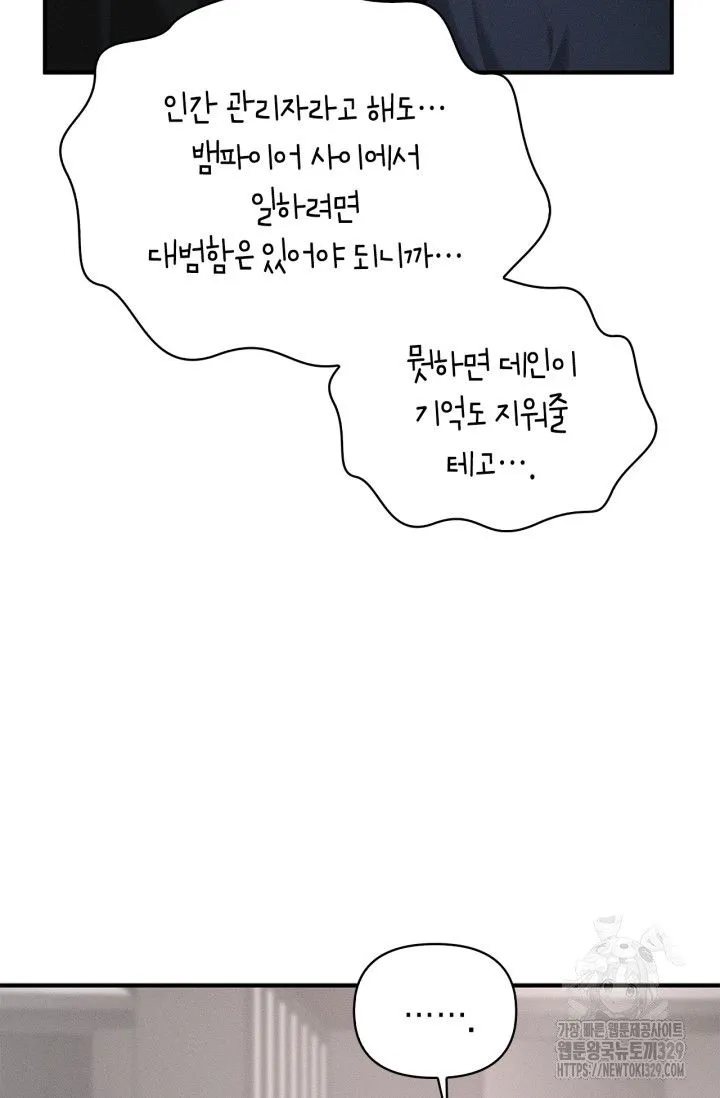 인간 관리자라고 해도…
뱀파이어 사이에서
일하려면
대범함은 있어야 되니까…
뭣하면 데인이
기억도 지워줄
테고….
…….
가장 빠른 웹툰제공사이트
웹툰왕국뉴토끼329
HTTPS://NEWTOKI329.COM